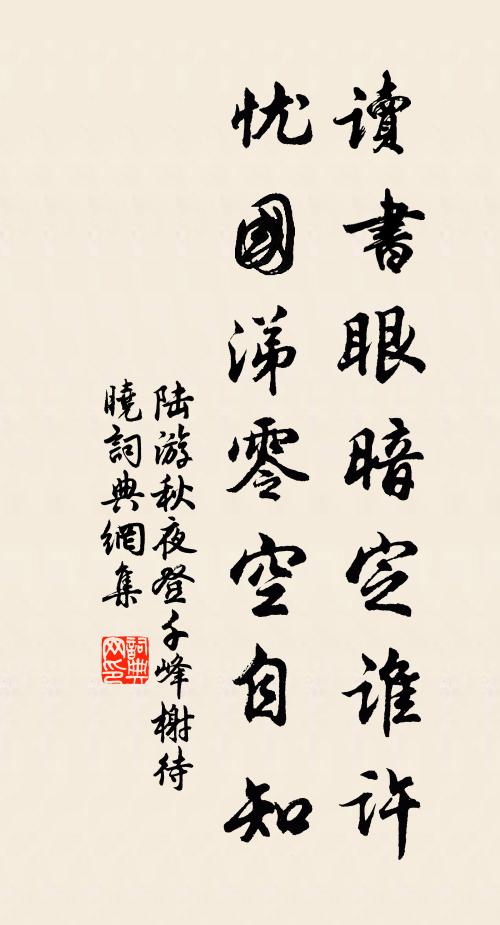 讀書眼暗定誰許
憂國涕零空自知
陸游秋夜登千峰榭待
曉詞典網集
詞典
网印